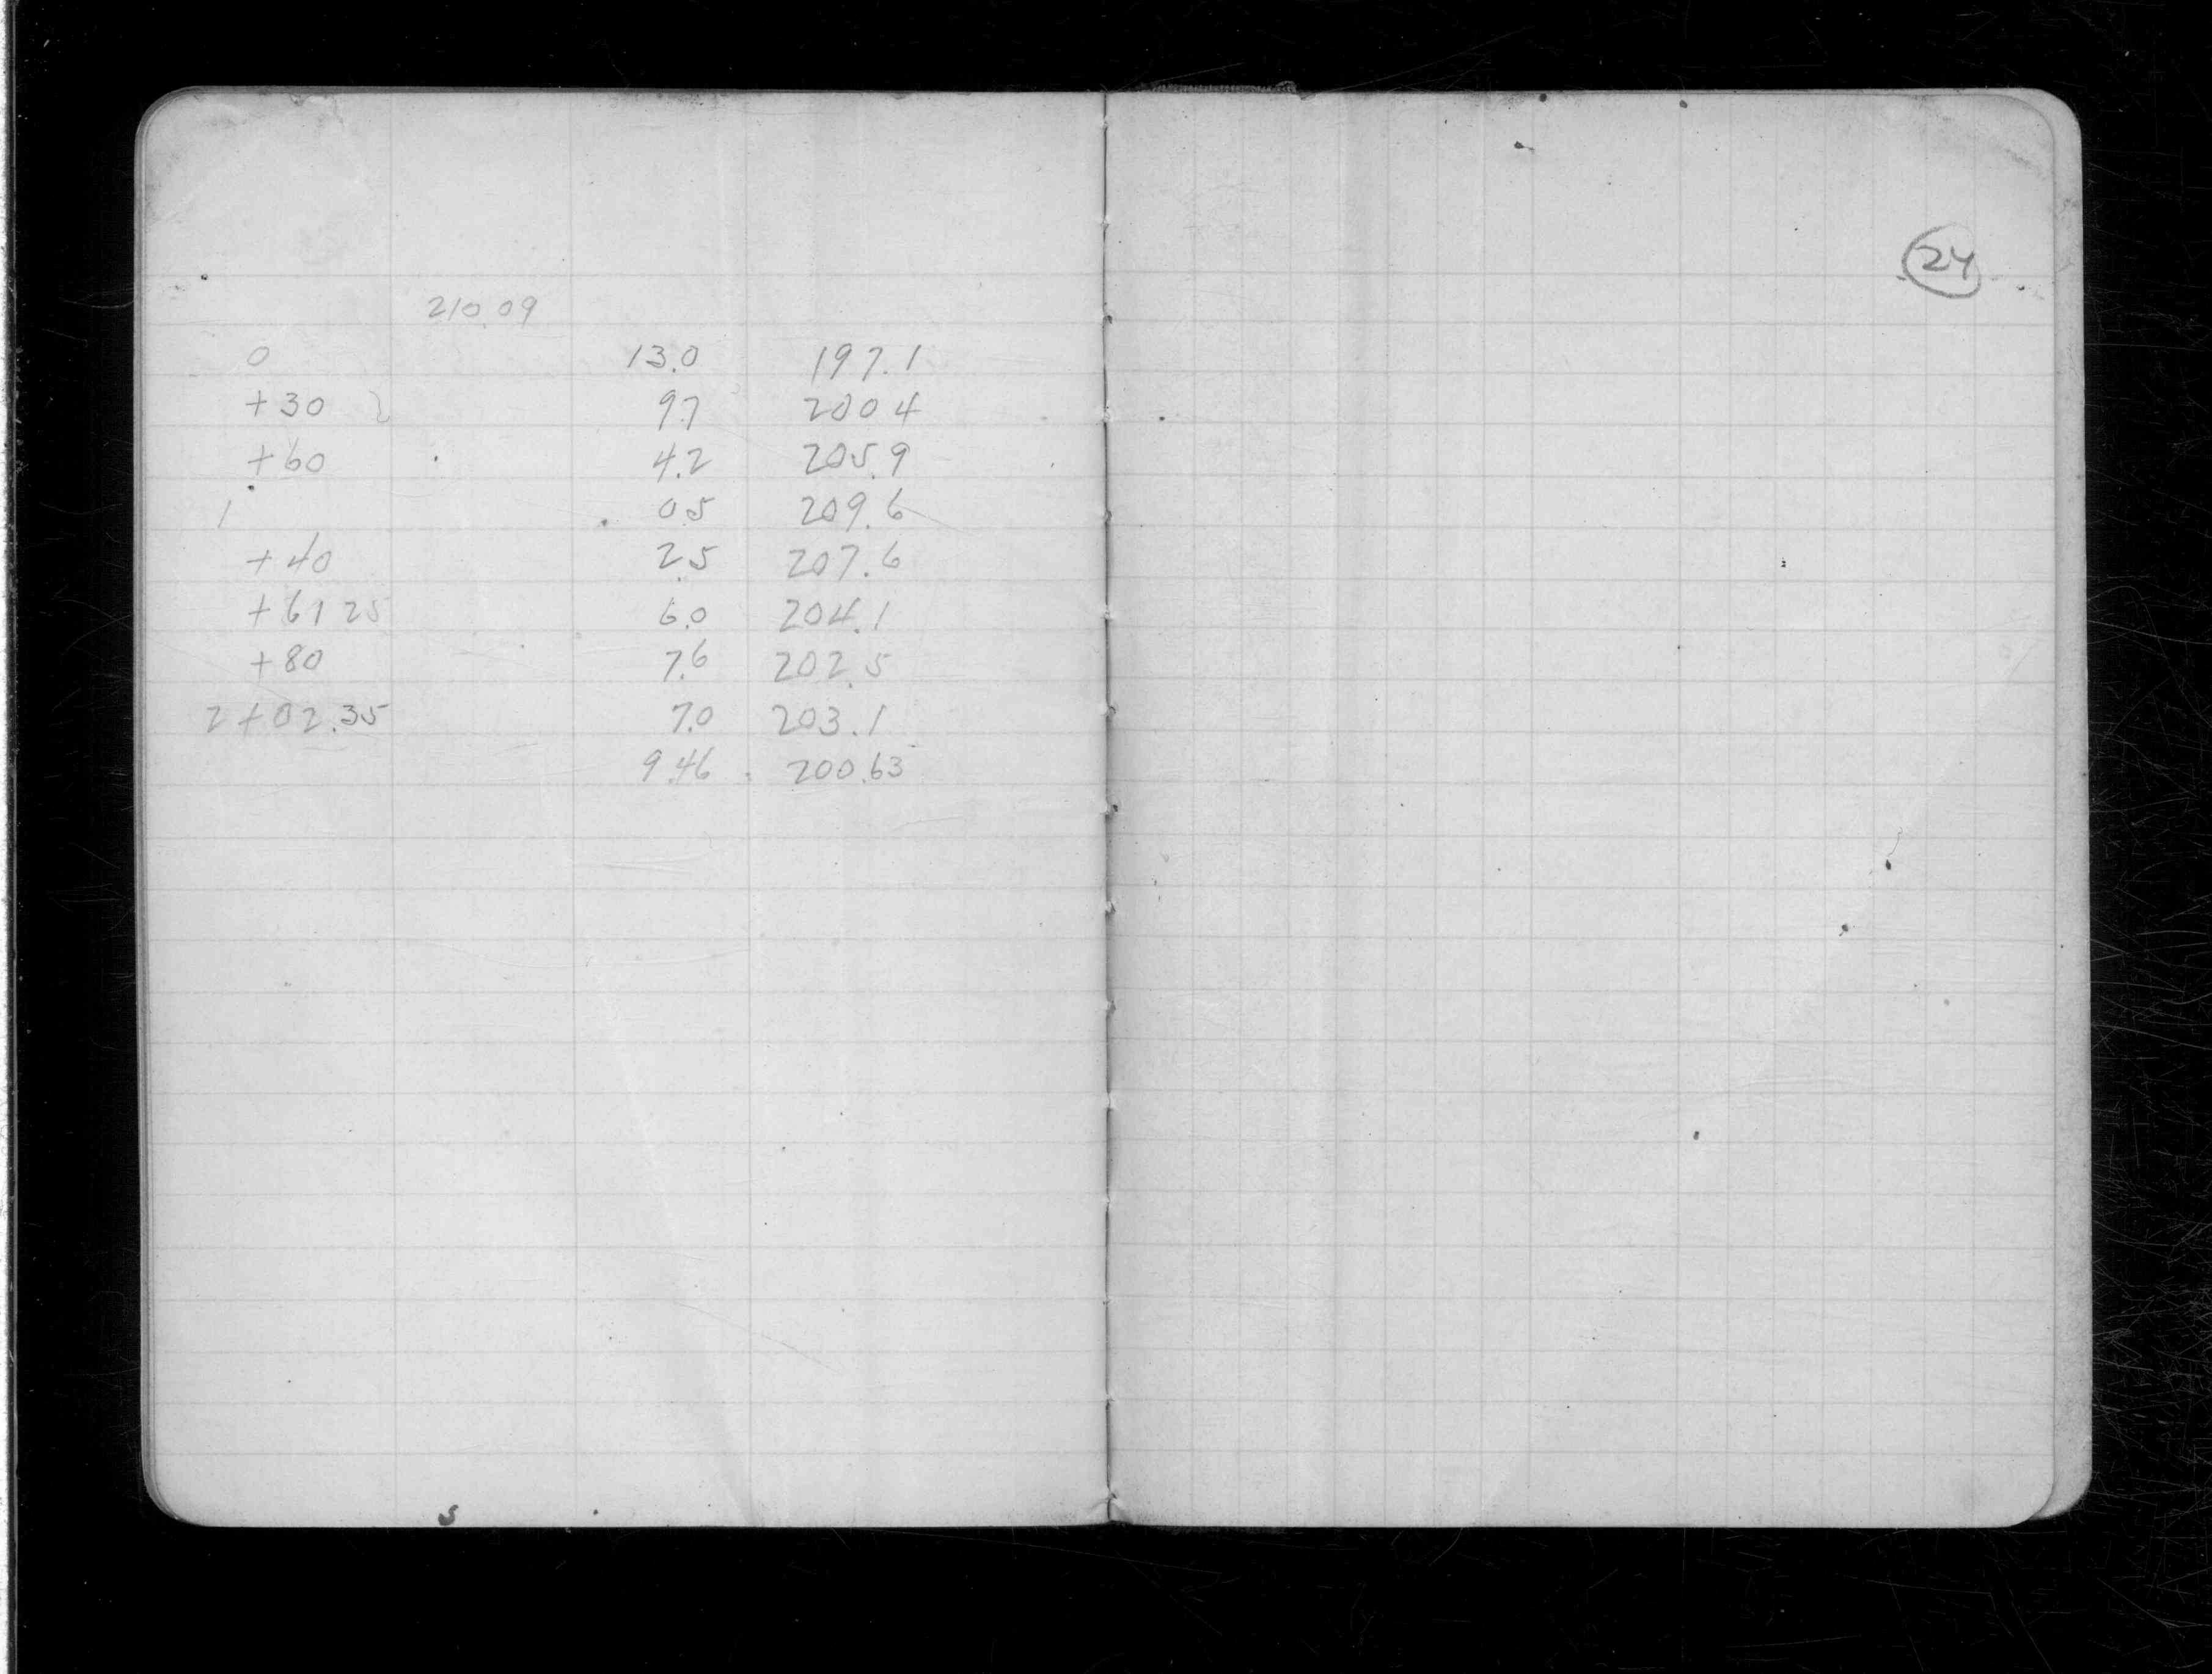 210.09
0 13.0 197.1
+30 9.7 200 4
+60 4.2 205.9
1 0.5 209.6
+40 2.5 207.6
+61 25 6.0 204.1
+80 7.6 202.5
2+02.35 7.0 203.1
9.46 200.63
24